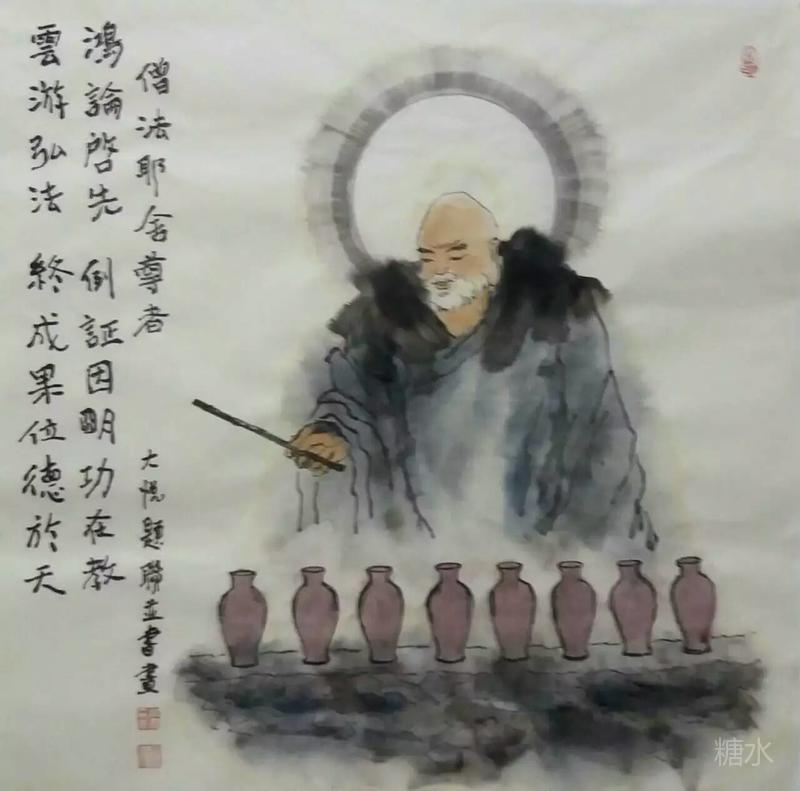 僧法耶舍尊者
鴻論啓先 例証因明功在教
雲游弘法 終成果位德於天
大悦題聯並書畫
糖水